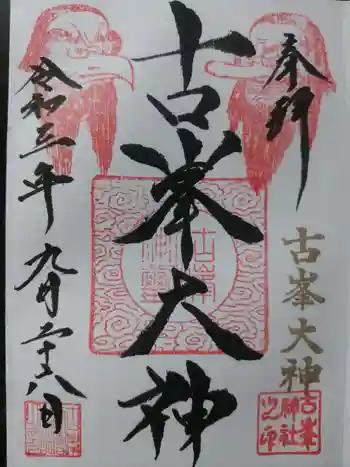 奉拝
古峯大神
古峯大神
古峯
神社
之印
令和三年九月二十八日